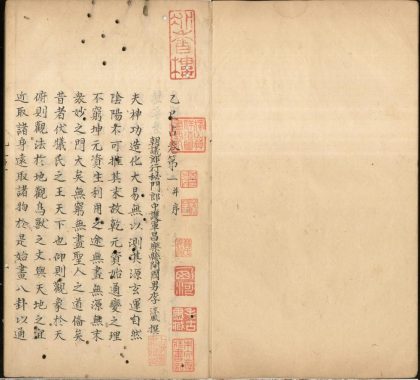 乙巳占卷第一 并序
朝議郎行秘閣郎中護軍昌樂縣開國男李淳風撰
夫神功造化大易無以測其源玄運自然
陰陽不可推其末故乾元資始通變之理
不窮坤元資生利用之途無盡無源無末
衆妙之門大矣無窮無盡聖人之道備矣
昔者伏犧氏之王天下也仰則觀象於天
俯則觀法於地觀鳥獸之文與天地之宜
近取諸身遠取諸物於是始畫八卦以通